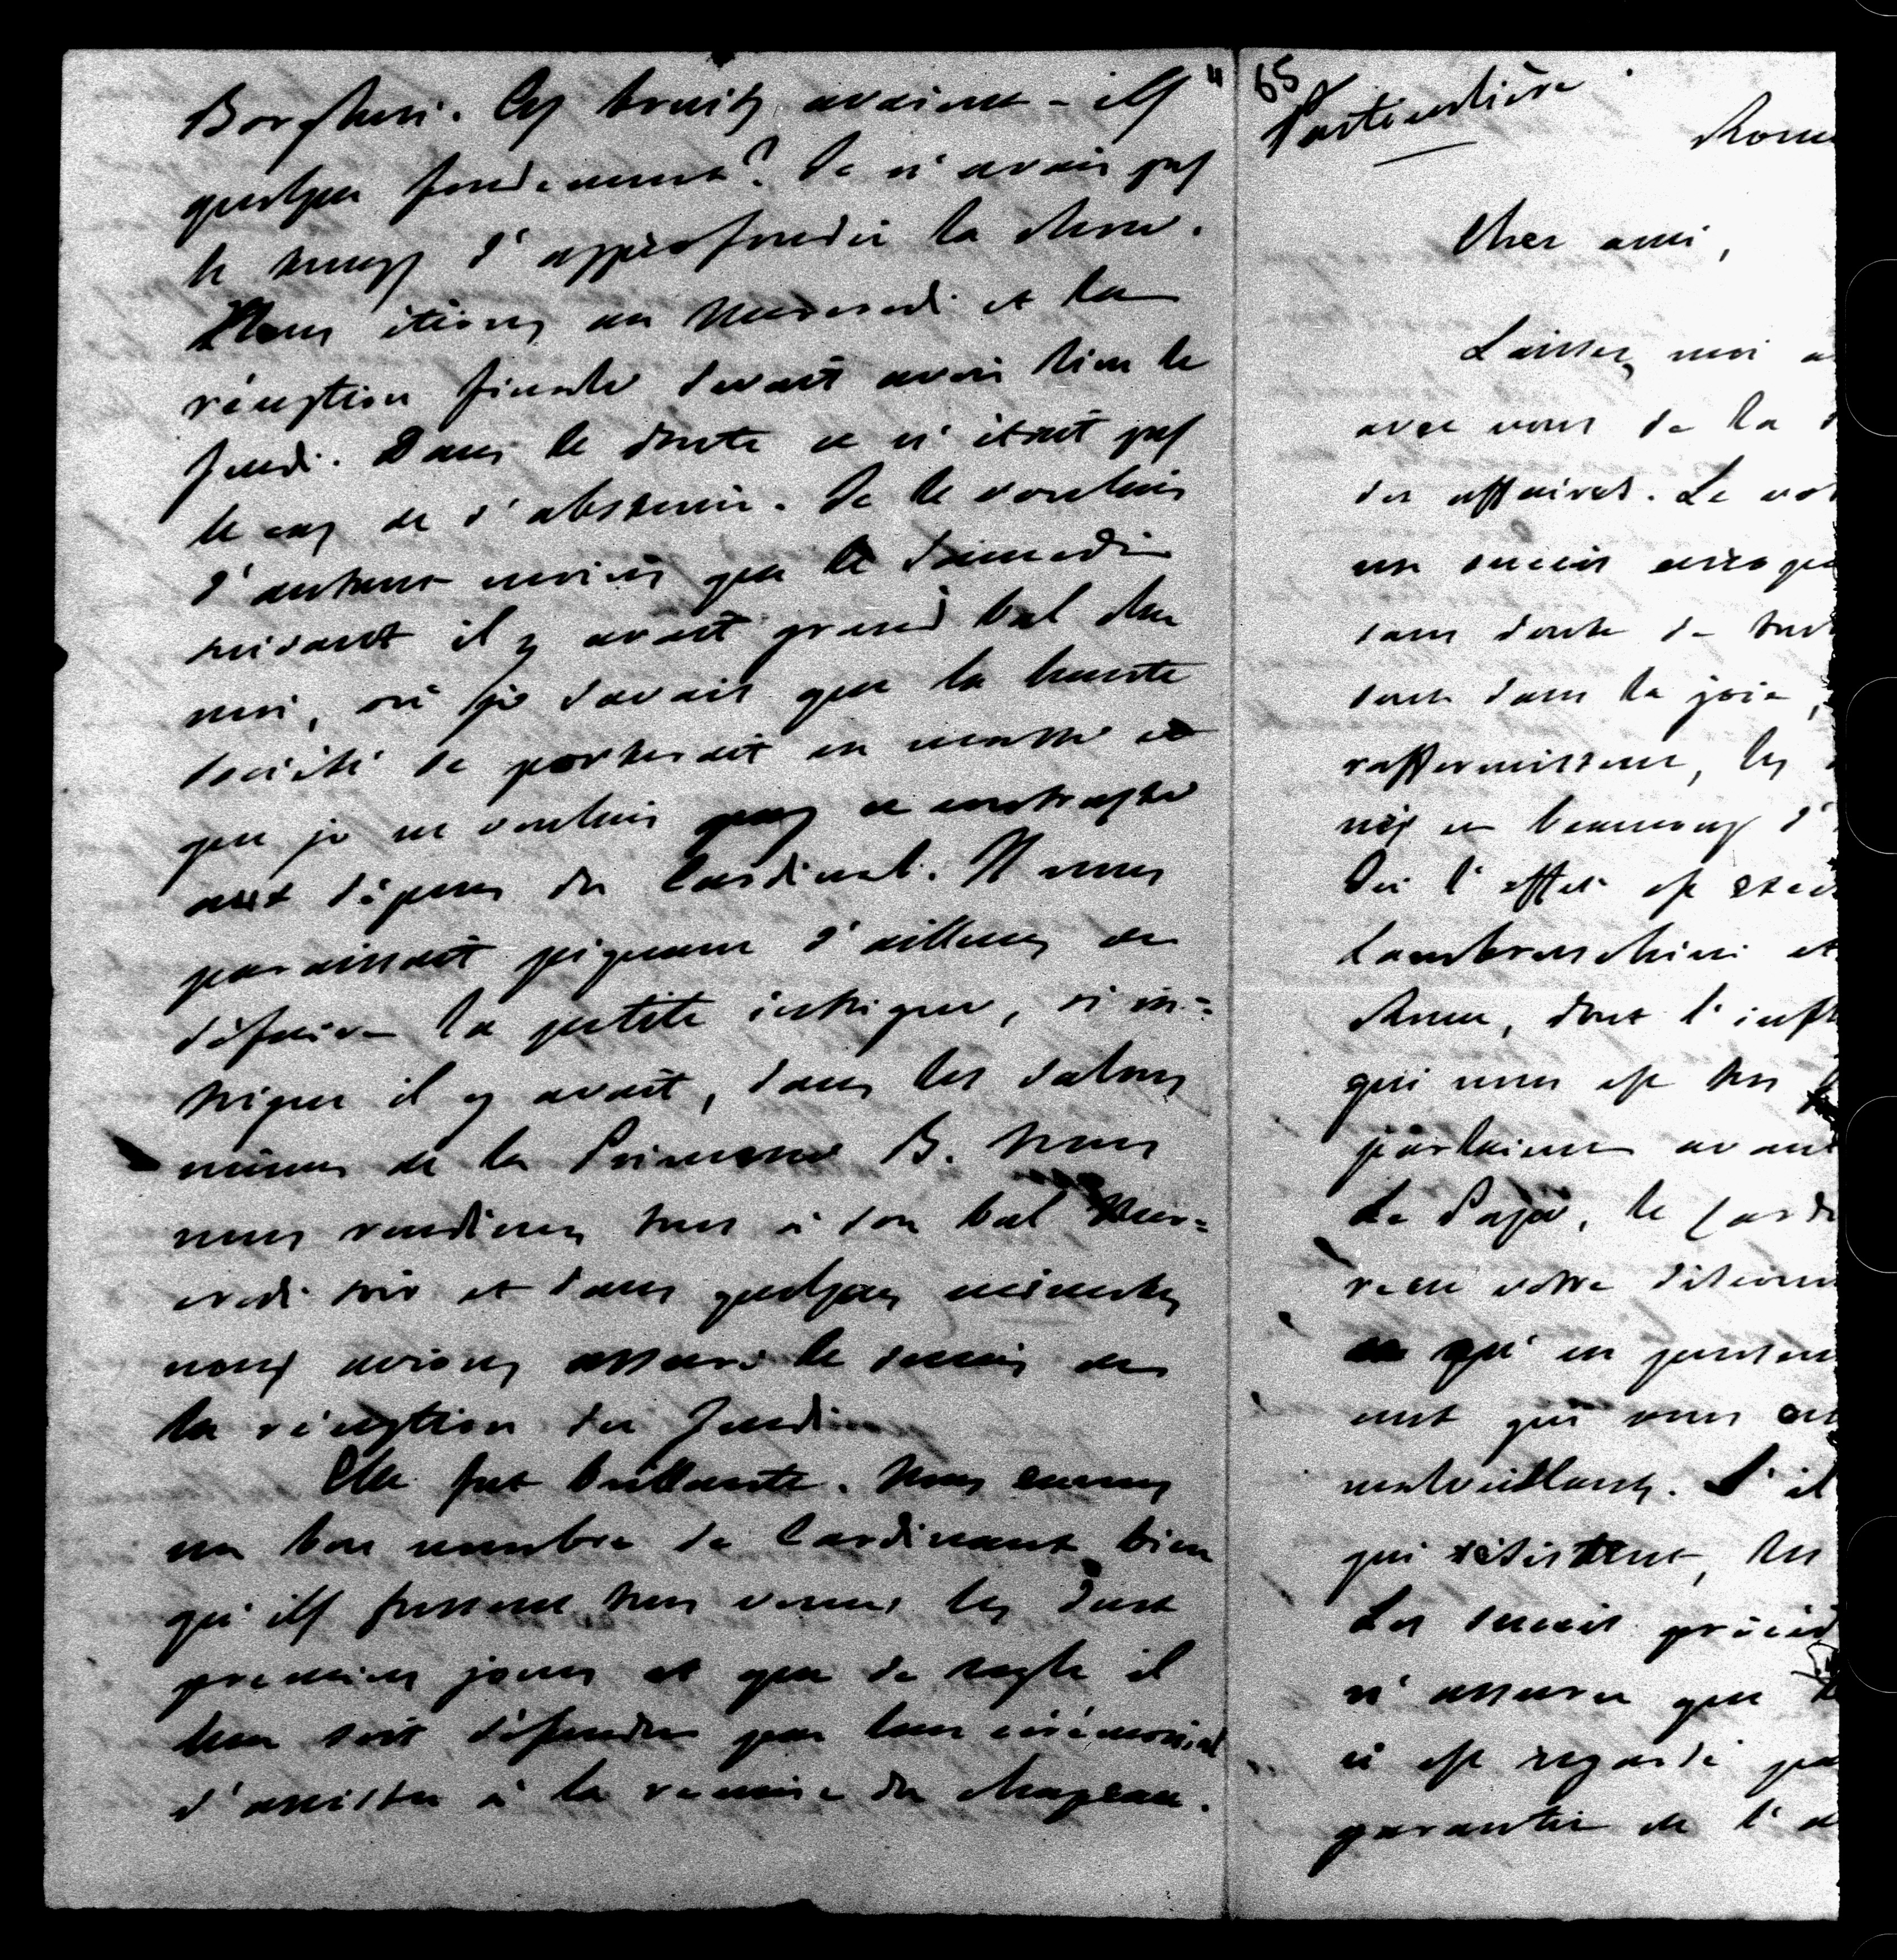 Borghesi. Ces bruits avaient-ils
quelque fondement? Je n'avais pas
le temps d'approfondir la chose.
Nous étions au Mercredi et la
réception finale devait avoir lieu le
Jeudi. Dans le doute ce n'était pas
le cas de s'abstenir. Je le voulais
d'autant moins que le Samedi
suivant il y avait grand bal chez
moi, où je savais que la haute
société se porterait en masse et
que je ne voulais pas ce contraste
aux dépens du Cardinal. Il nous
paraissait piquant d'ailleurs de
défaire la petite intrigue, si in=
trigue il y avait, dans les salons
mêmes de la Princesse B. Nous
nous rendîmes tous à son bal Mer=
credi soir et dans quelques minutes
nous avions assuré le succès de
la réception du Jeudi.
Elle fut brillante. Nous eumes
un bon nombre de Cardinaux bien
qu'ils fussent tous venus les deux
premiers jours et que de règle il
leur soit défendu par leur cérémonial
d'assister à la remise du chapeau.
65
Particulière
Rome
Cher ami,
Laissez moi
avec vous de la
des affaires. Le
un succès
sans doute de
sont dans la joie,
raffermissent, les
nés en beaucoup d'
Ici l'effet est
Lambruschini et
Rome, dont l'infl
qui nous est très
parlaient avant
Le Pape, le Card
votre
qu'en
ont qui vous
malveillants. S'il
qui résistent, les
Les succès précéd
n'assurer que
il est regardé
garantie de l'a